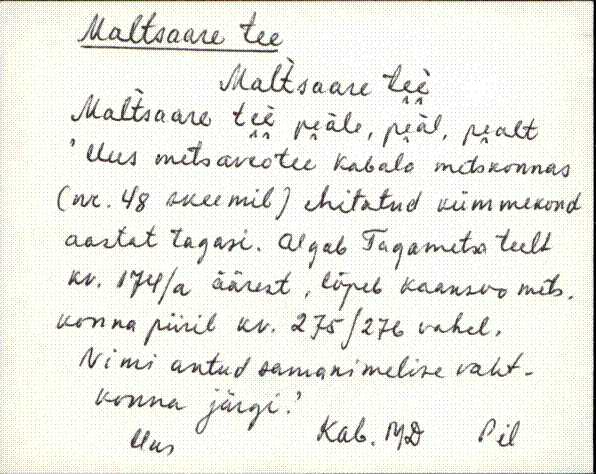 Maltsaare tee
Malt̀saare tèè̬
Malt̀saare tèè̬ pe̬äle, pe̬äl, pe̬alt
'Uus metsaveotee Kabala metskonnas
(nr. 48 skeemil) ehitatud kümmekond
aastat tagasi. Algab Tagametsa teelt
kv. 174/a äärest, lõpeb Kaansoo mets.
konna piiril kv. 275/276 vahel.
Nimi antud samanimelise vaht-
konna järgi.'
Uus Kab. MD Pil